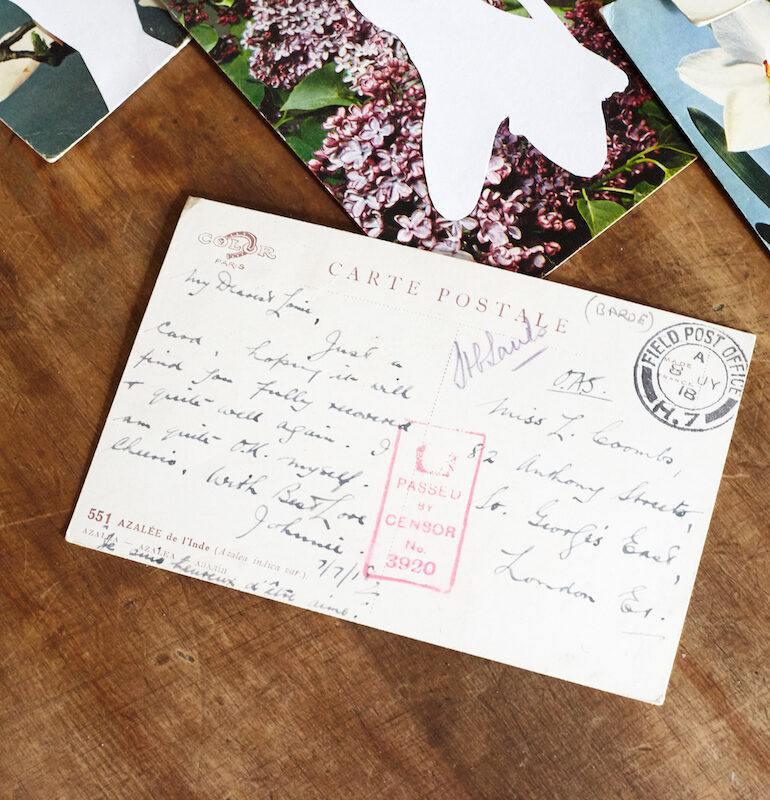 COLOR
PARIS
CARTE POSTALE
(BARDE)
My Dearest
Card, Just a
hoping it will
find you fully recovered
+ quite well again. I
am quite O.K. myself.
Cheerio. With Best Love
Johnnie.
7/7/18
551 AZALÉE de l'Inde (Azalea indica var.)
AZALEA — AZALEA
Je suis heureux d'être aimé.
OAS
Miss L. Coombs,
82 Anthony Street,
St. George's East,
London E1.
PASSED
BY
CENSOR
No.
3920
FIELD POST OFFICE
A
8 JY
18
H.7